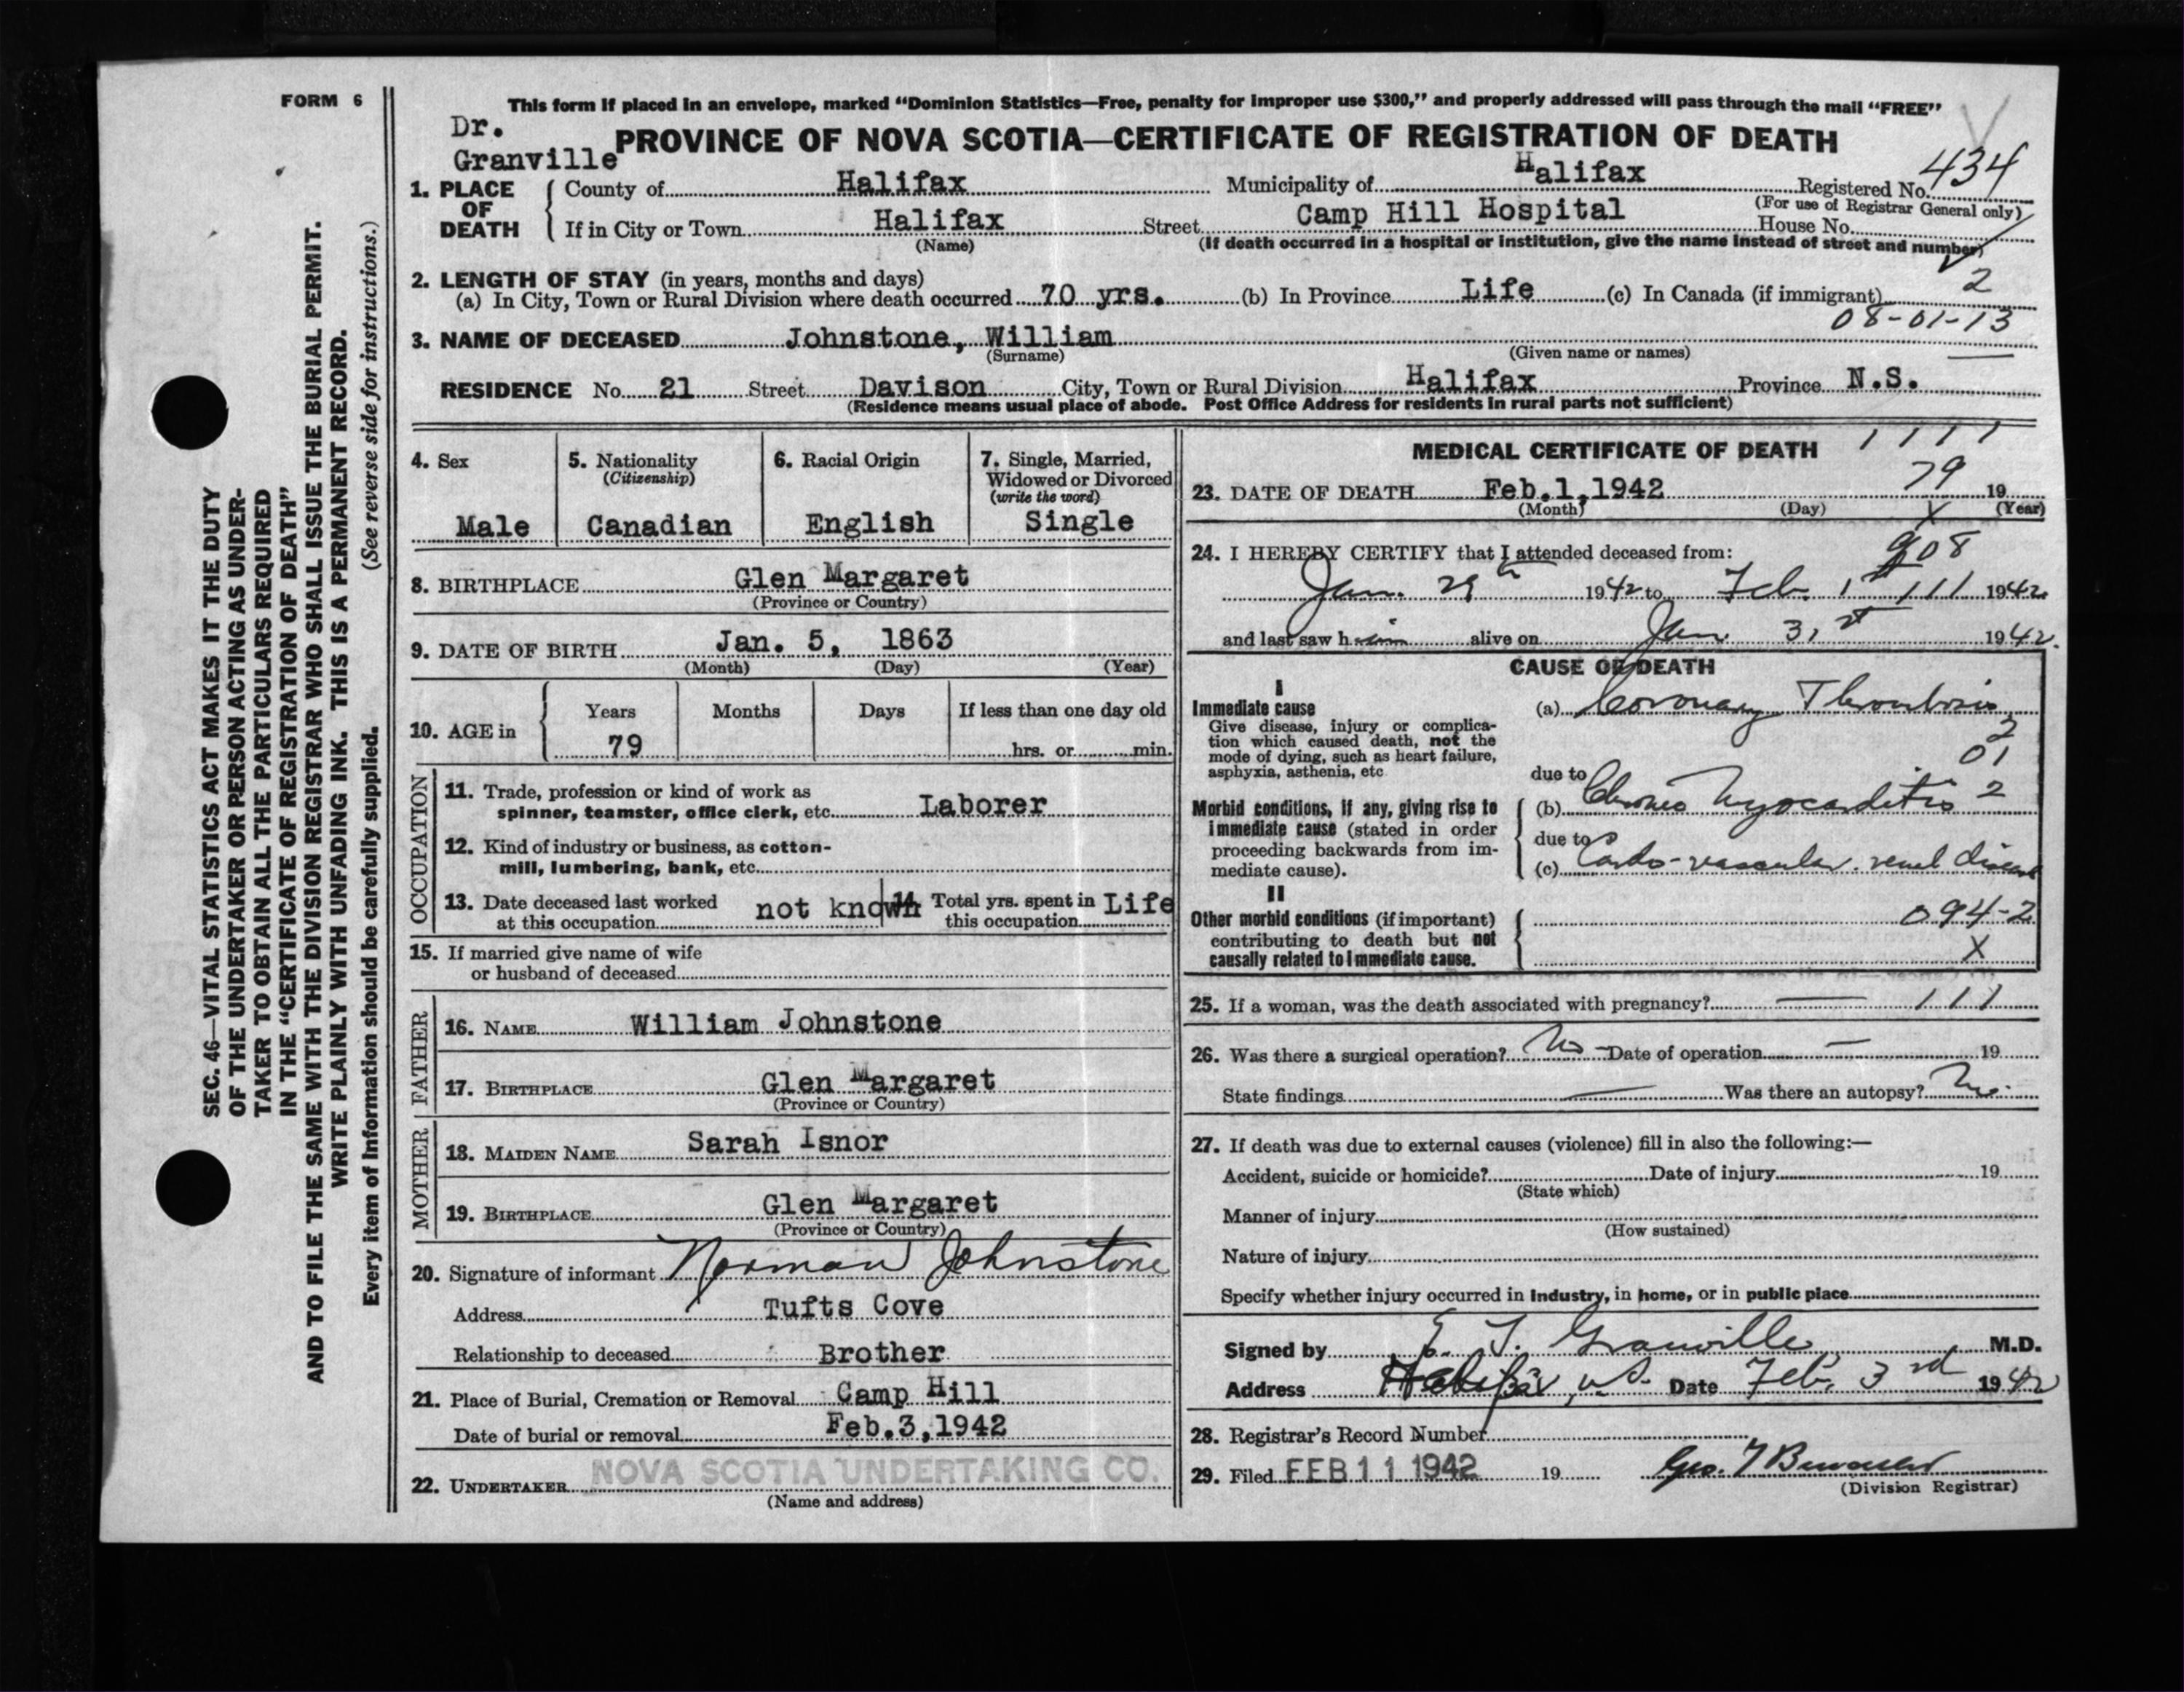 FORM 6
This form if placed in an envelope, marked “Dominion Statistics—Free, penalty for improper use $300,” and properly addressed will pass through the mail “FREE”
Dr.
Granville
PROVINCE OF NOVA SCOTIA—CERTIFICATE OF REGISTRATION OF DEATH
1. PLACE OF DEATH
County of Halifax Municipality of Halifax Registered No. 434
(For use of Registrar General only)
If in City or Town Halifax Street Camp Hill Hospital House No.
(Name) (If death occurred in a hospital or institution, give the name instead of street and number)
2. LENGTH OF STAY (in years, months and days)
(a) In City, Town or Rural Division where death occurred 70 yrs. (b) In Province Life (c) In Canada (if immigrant) 2
08-01-13
3. NAME OF DECEASED Johnstone, William
(Surname) (Given name or names)
RESIDENCE No. 21 Street Davison City, Town or Rural Division Halifax Province N.S.
(Residence means usual place of abode. Post Office Address for residents in rural parts not sufficient)
4. Sex
Male
5. Nationality
(Citizenship)
Canadian
6. Racial Origin
English
7. Single, Married,
Widowed or Divorced
(write the word)
Single
8. BIRTHPLACE Glen Margaret
(Province or Country)
9. DATE OF BIRTH Jan. 5, 1863
(Month) (Day) (Year)
10. AGE in
Years Months Days If less than one day old
79 hrs. or min.
OCCUPATION
11. Trade, profession or kind of work as
spinner, teamster, office clerk, etc. Laborer
12. Kind of industry or business, as cotton-
mill, lumbering, bank, etc.
13. Date deceased last worked
at this occupation not known
14. Total yrs. spent in
this occupation Life
15. If married give name of wife
or husband of deceased
FATHER
16. NAME William Johnstone
17. BIRTHPLACE Glen Margaret
(Province or Country)
MOTHER
18. MAIDEN NAME Sarah Isnor
19. BIRTHPLACE Glen Margaret
(Province or Country)
20. Signature of informant Norman Johnstone
Address Tufts Cove
Relationship to deceased Brother
21. Place of Burial, Cremation or Removal Camp Hill
Date of burial or removal Feb.3,1942
22. UNDERTAKER NOVA SCOTIA UNDERTAKING CO.
(Name and address)
MEDICAL CERTIFICATE OF DEATH 1 1 1 1
79
23. DATE OF DEATH Feb.1,1942 19
(Month) (Day) X (Year)
24. I HEREBY CERTIFY that I attended deceased from: 908
Jan. 29th 1942 to Feb. 1st 111 1942
and last saw him alive on Jan 31st 1942.
CAUSE OF DEATH
I
Immediate cause
Give disease, injury or complica-
tion which caused death, not the
mode of dying, such as heart failure,
asphyxia, asthenia, etc
(a) Coronary Thrombosis
2
01
due to
Morbid conditions, if any, giving rise to
immediate cause (stated in order
proceeding backwards from im-
mediate cause).
(b) Chronic Myocarditis 2
due to
(c) Cardo-vascular. renal disease
II
Other morbid conditions (if important)
contributing to death but not
causally related to immediate cause.
094-2
X
25. If a woman, was the death associated with pregnancy? — 1 1 1
26. Was there a surgical operation? No - Date of operation — 19
State findings — Was there an autopsy? No.
27. If death was due to external causes (violence) fill in also the following:—
Accident, suicide or homicide? Date of injury 19
(State which)
Manner of injury
(How sustained)
Nature of injury
Specify whether injury occurred in industry, in home, or in public place
Signed by E. T. Granville M.D.
Address Halifax, N.S. Date Feb. 3rd 1942
28. Registrar's Record Number
29. Filed FEB 11 1942 19
(Division Registrar)
SEC. 46—VITAL STATISTICS ACT MAKES IT THE DUTY
OF THE UNDERTAKER OR PERSON ACTING AS UNDER-
TAKER TO OBTAIN ALL THE PARTICULARS REQUIRED
IN THE “CERTIFICATE OF REGISTRATION OF DEATH”
AND TO FILE THE SAME WITH THE DIVISION REGISTRAR WHO SHALL ISSUE THE BURIAL PERMIT.
WRITE PLAINLY WITH UNFADING INK. THIS IS A PERMANENT RECORD.
Every item of Information should be carefully supplied. (See reverse side for instructions.)